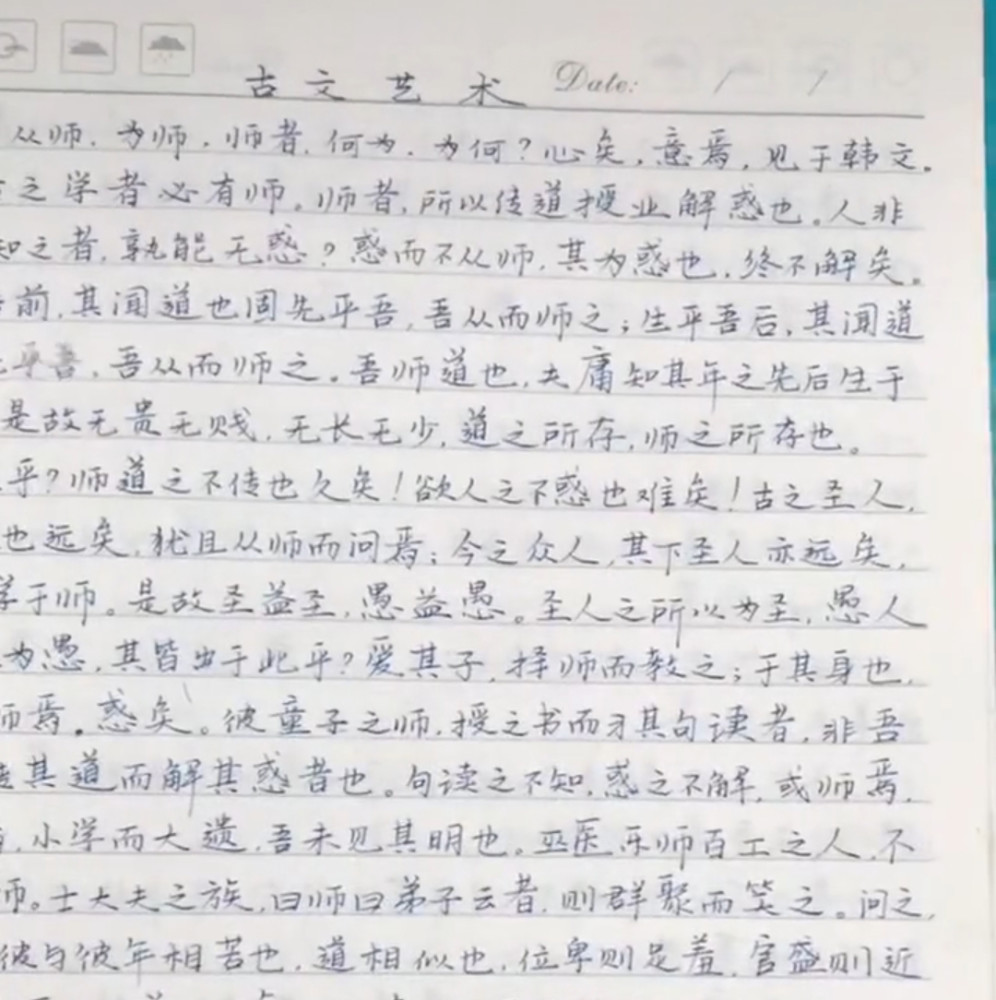 古文艺术 Date: / /
从师.为师.师者.何为.为何?心矣,意焉,见于韩文.
之学者必有师。师者,所以传道授业解惑也。人非
知之者,孰能无惑?惑而不从师,其为惑也,终不解矣。
前,其闻道也固先乎吾,吾从而师之;生乎吾后,其闻道
乎吾,吾从而师之。吾师道也,夫庸知其年之先后生于
是故无贵无贱,无长无少,道之所存,师之所存也。
乎?师道之不传也久矣!欲人之不惑也难矣!古之圣人,
也远矣,犹且从师而问焉;今之众人,其下圣人亦远矣,
学于师。是故圣益圣,愚益愚。圣人之所以为圣,愚人
为愚,其皆出于此乎?爱其子,择师而教之;于其身也,
师焉。惑矣。彼童子之师,授之书而习其句读者,非吾
其道而解其惑者也。句读之不知,惑之不解,或师焉,
小学而大遗,吾未见其明也。巫医乐师百工之人,不
师。士大夫之族,曰师曰弟子云者,则群聚而笑之。问之,
彼与彼年相若也,道相似也,位卑则足羞,官盛则近